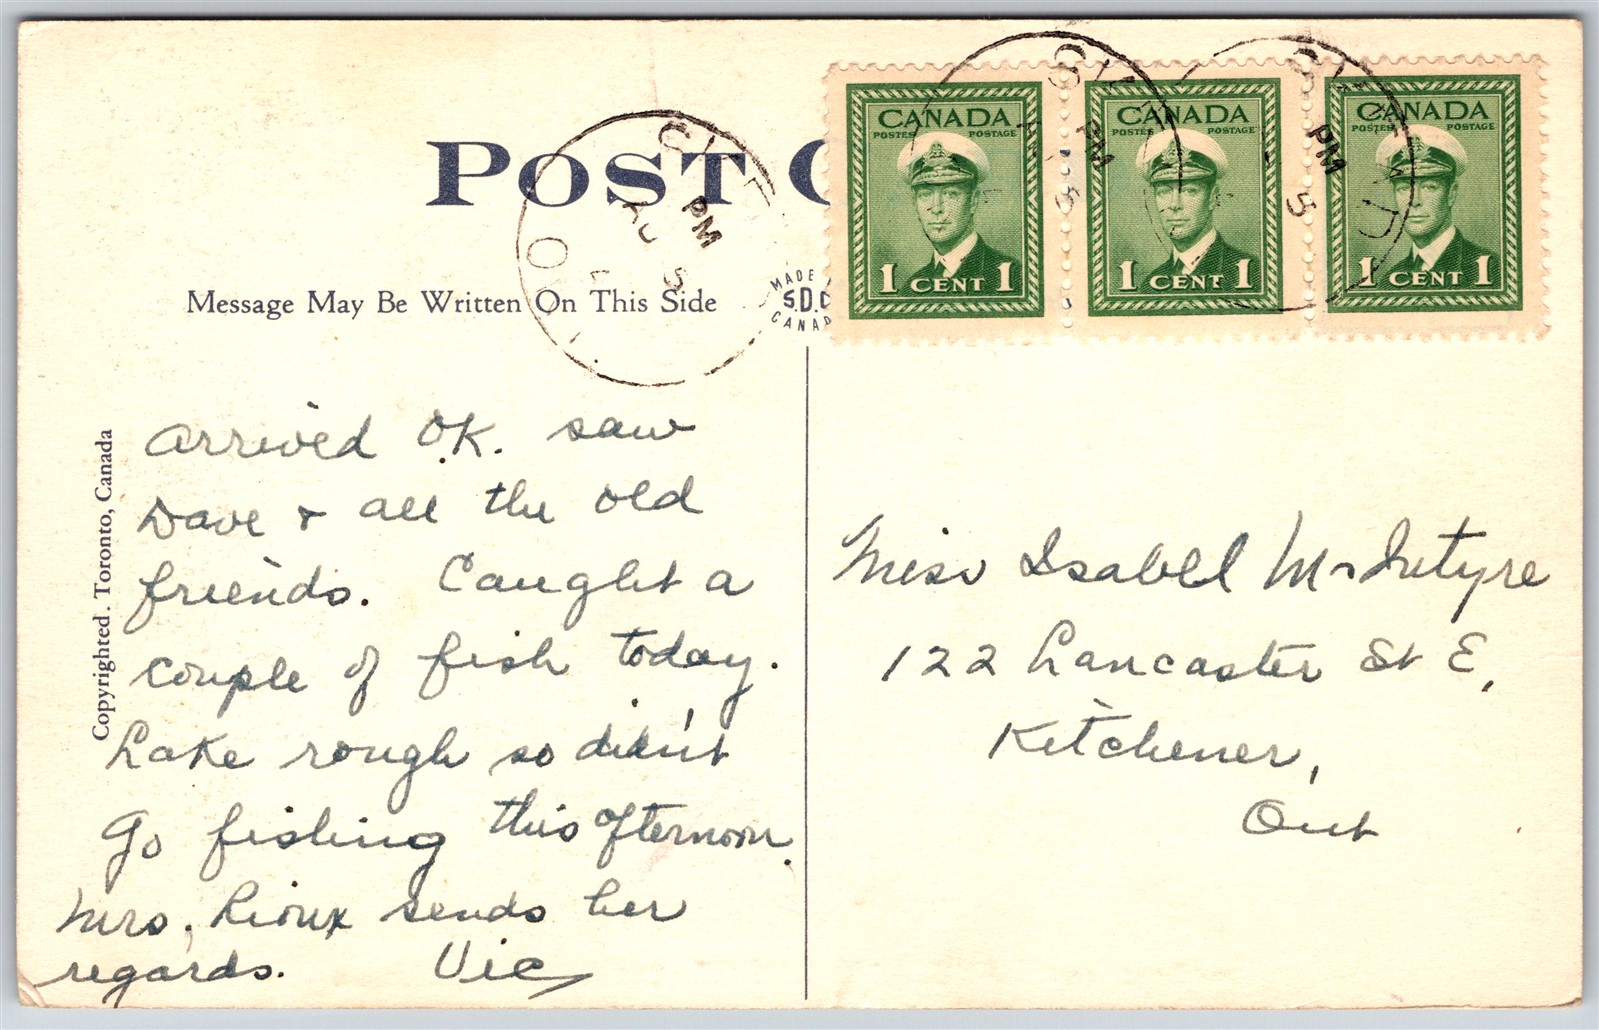 POST C
Message May Be Written On This Side
MADE
S.D.C
CANAD
Copyrighted. Toronto, Canada
CANADA
POSTES POSTAGE
1 CENT 1
CANADA
POSTES POSTAGE
1 CENT 1
CANADA
POSTES POSTAGE
1 CENT 1
PM
AU
5
PM
5
PM
5
Arrived OK. saw
Dave & all the old
friends. Caught a
couple of fish today.
Lake rough so didn't
go fishing this afternoon.
Mrs. Rioux sends her
regards. Vic
Miss Isabel McIntyre
122 Lancaster St E,
Kitchener,
Ont